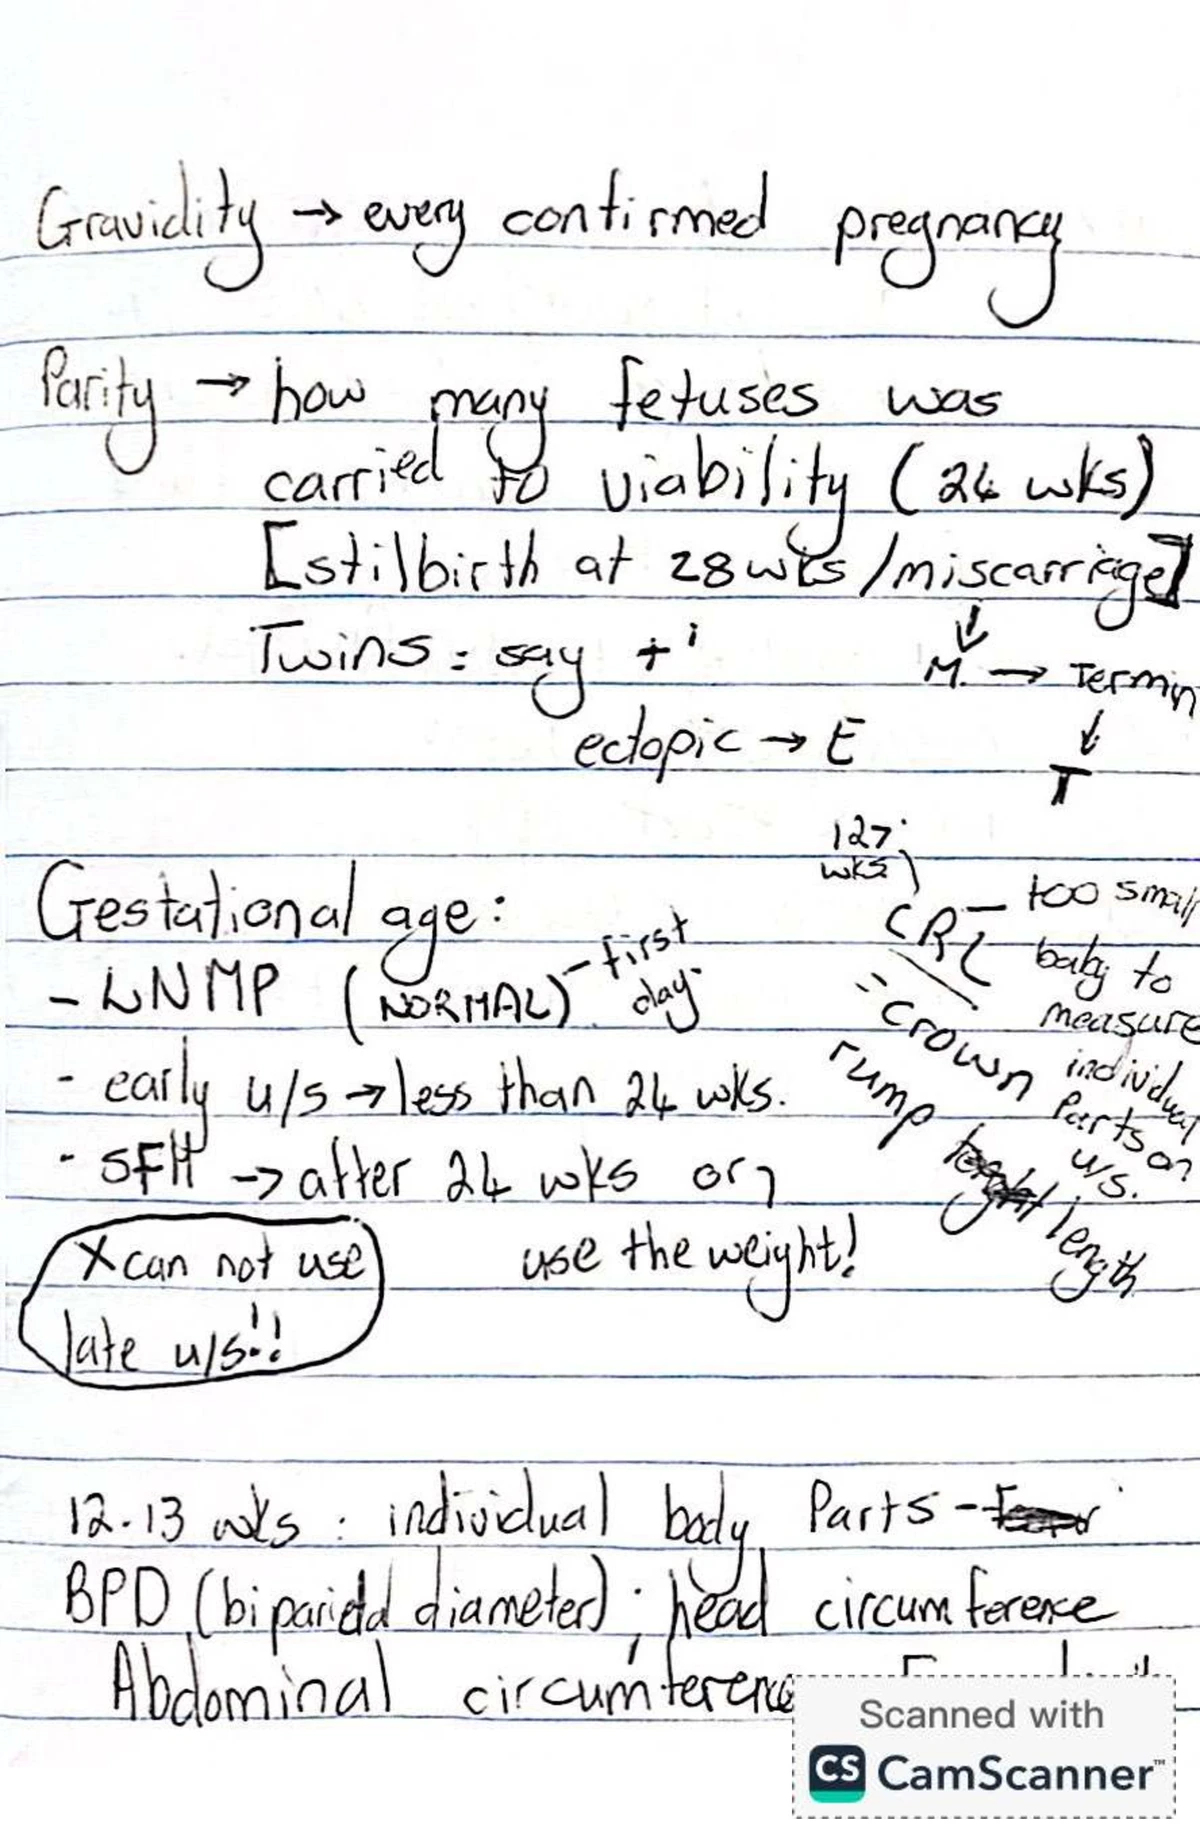 Gravidity → every confirmed pregnancy
Parity → how many fetuses was
carried to viability (24 wks)
[stilbirth at 28wks/miscarriage]
Twins: say +¹
M. → Termin
ectopic → E
T
Gestational age:
- LNMP (NORMAL) - first
day
- early u/s → less than 24 wks.
- SFH → after 24 wks or
use the weight!
X can not use
late u/s!!
wks
CRL — too small
baby to
measure
individual
parts on
u/s.
"crown
rump length
12-13 wks: individual body Parts -
BPD (biparietal diameter); head circumference
Abdominal circumference
Scanned with
CS CamScanner™